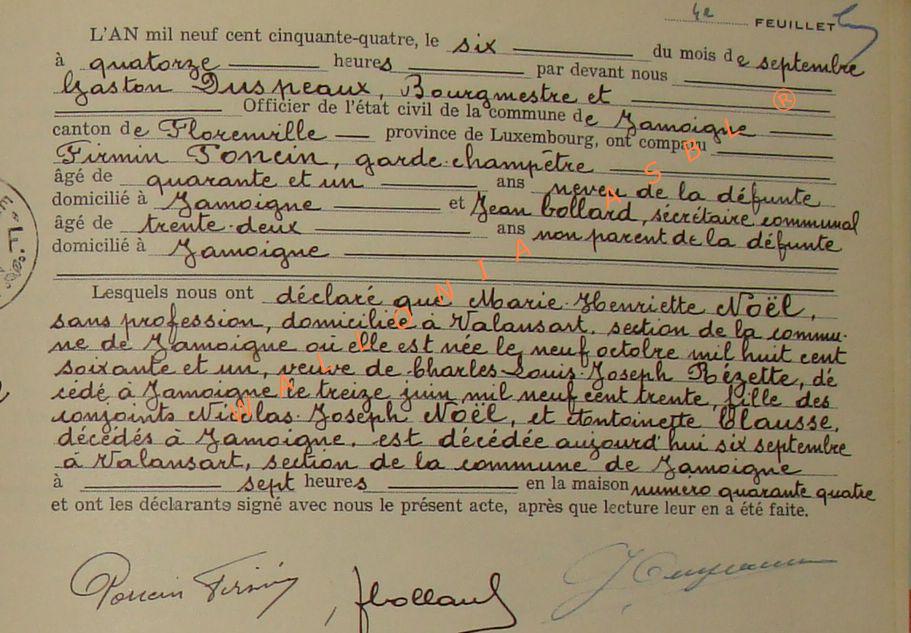 42 FEUILLET
L'AN mil neuf cent cinquante-quatre, le six du mois de septembre
à quatorze heures par devant nous
Gaston Duspeaux, Bourgmestre et
Officier de l'état civil de la commune de Jamoigne
canton de Florenville province de Luxembourg, ont comparu
Firmin Poncin, garde-champêtre
âgé de quarante et un ans neveu de la défunte
domicilié à Jamoigne et Jean Collard, sécrétaire communal
âgé de trente-deux ans non parent de la défunte
domicilié à Jamoigne
Lesquels nous ont déclaré que Marie-Henriette Noël,
sans profession, domiciliée à Valansart, section de la commu-
ne de Jamoigne où elle est née le neuf octobre mil huit cent
soixante et un, veuve de Charles-Louis-Joseph Rézette, dé
cédé à Jamoigne le treize juin mil neuf cent trente, fille des
conjoints Nicolas-Joseph Noël, et Antoinette Clausse,
décédés à Jamoigne, est décédée aujourd'hui six septembre
à Valansart, section de la commune de Jamoigne
à sept heures en la maison numéro quarante quatre
et ont les déclarants signé avec nous le présent acte, après que lecture leur en a été faite.
Poncin Firmin JCollard
WALLONIA ASBL ®